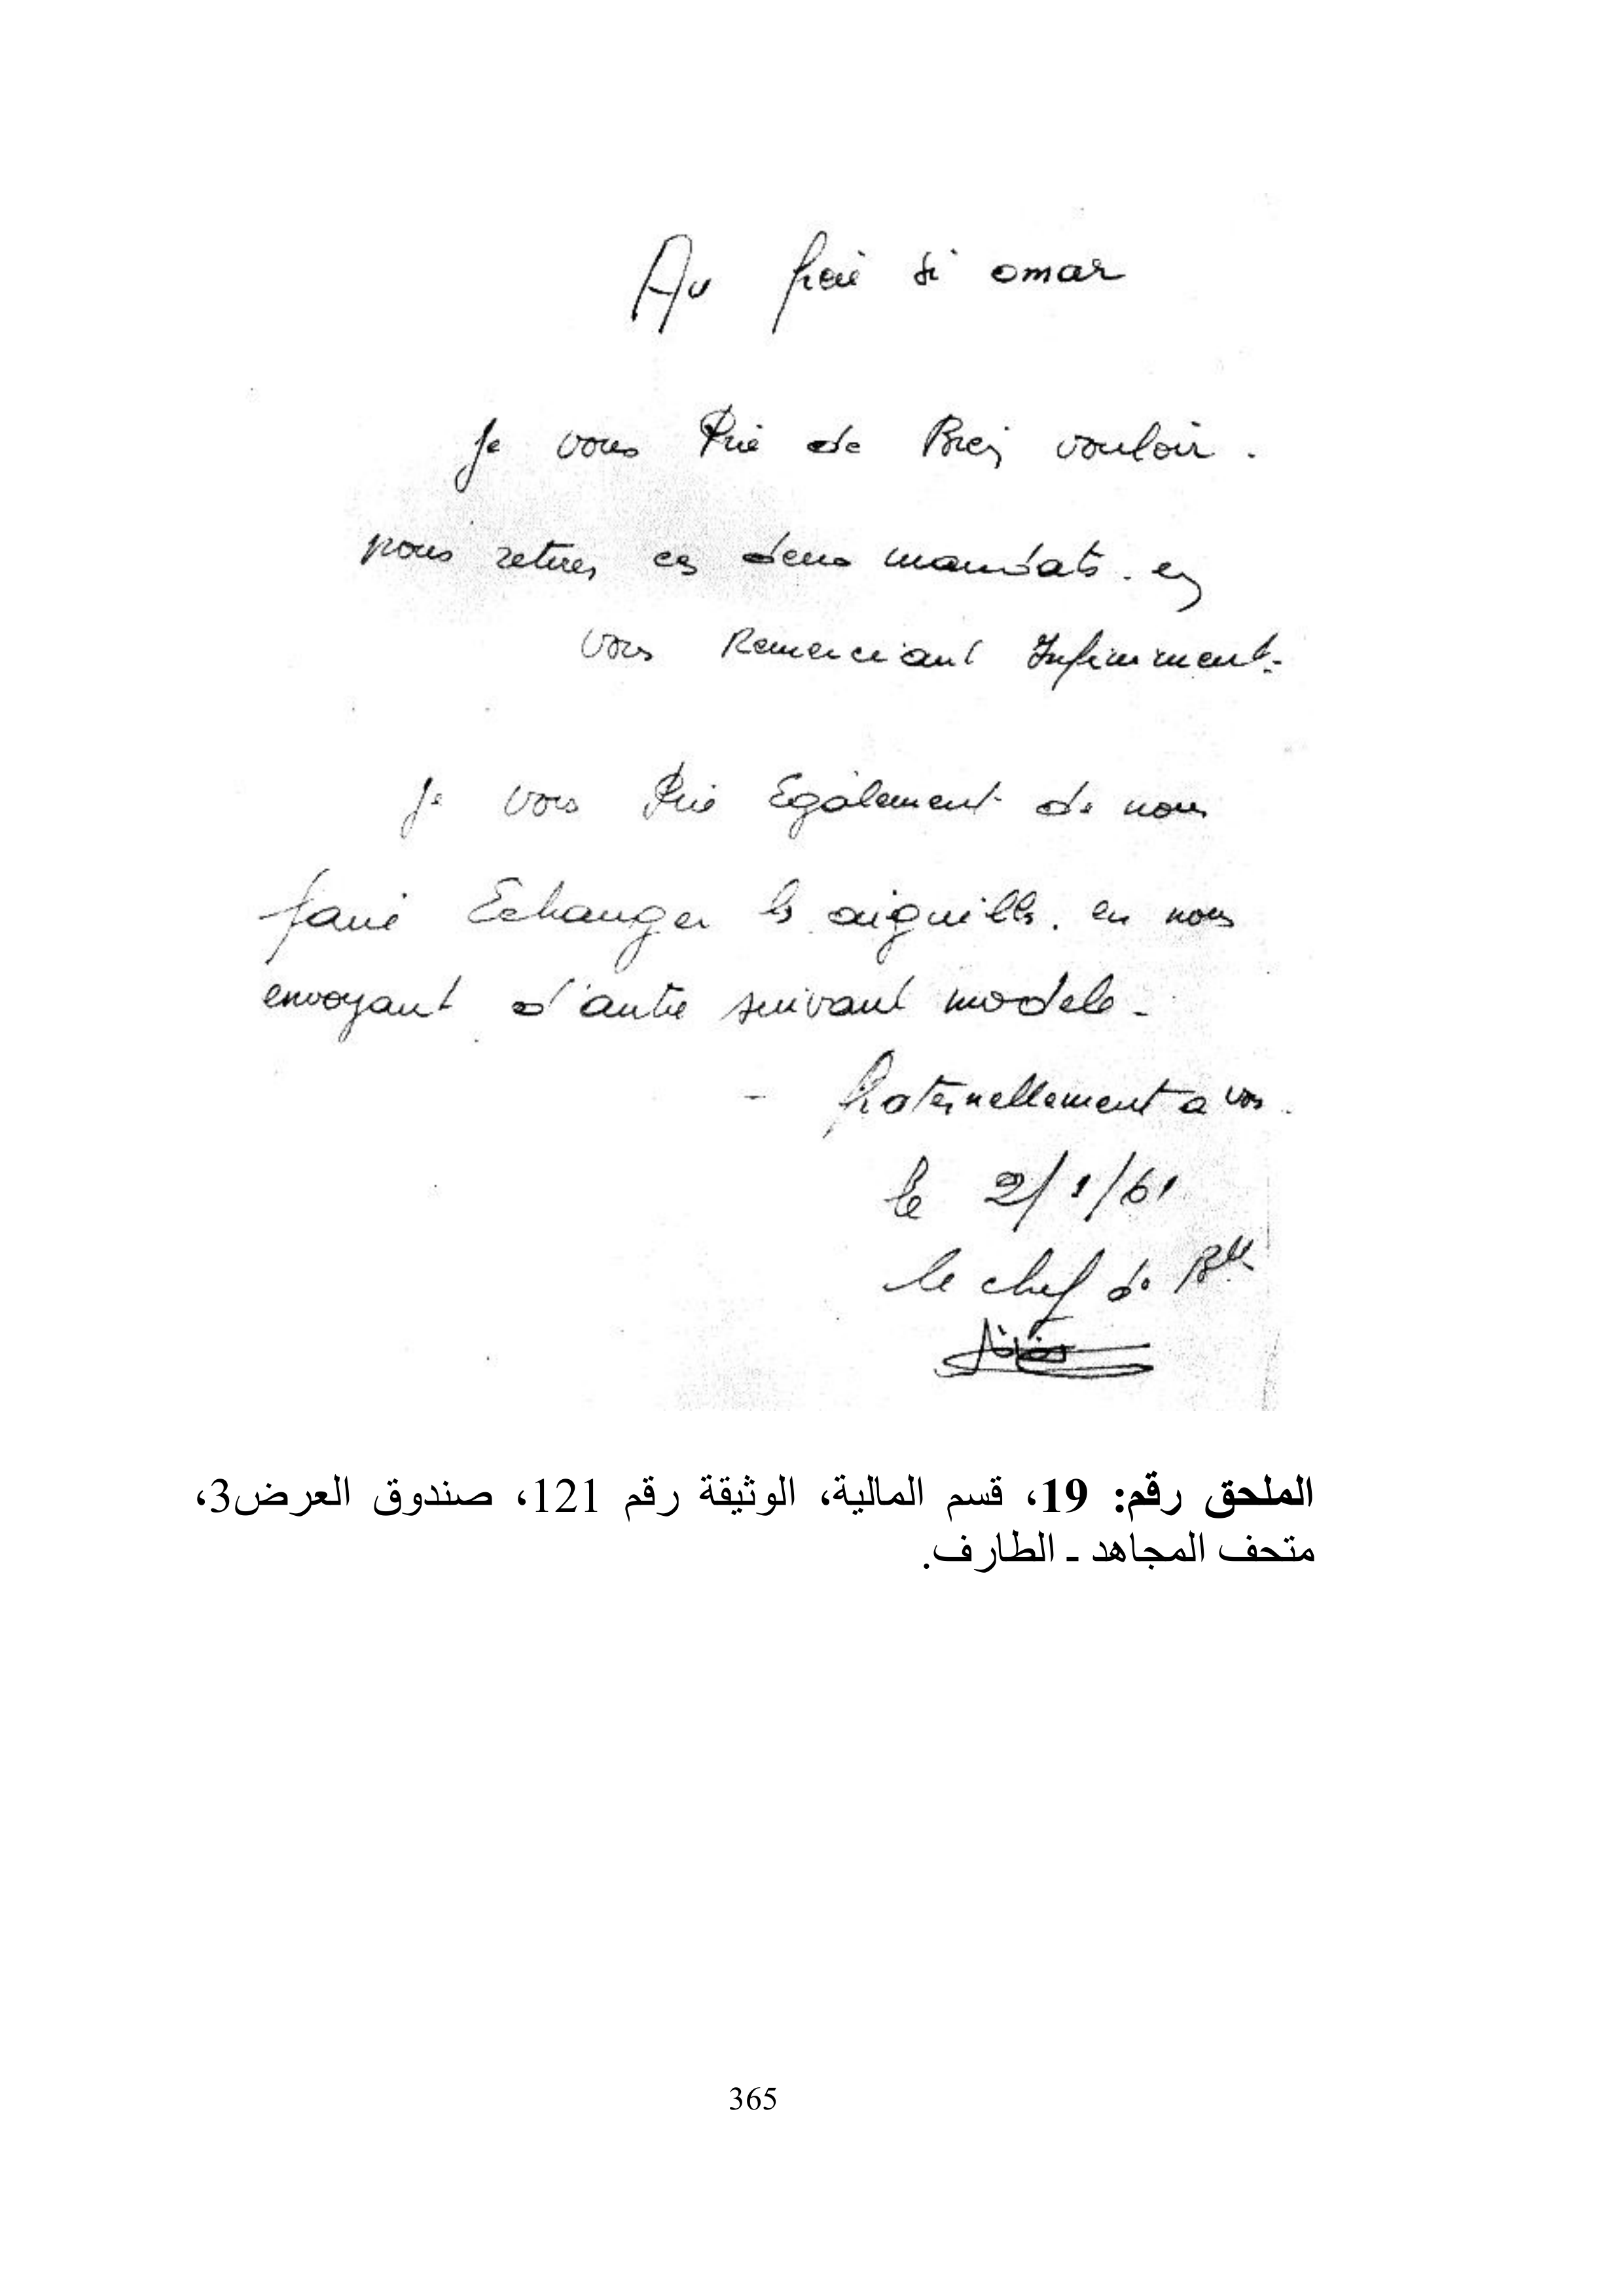 Au frère si omar
Je vous Prie de Bien vouloir.
nous retirer ces deux mandats. en
vous Remerciant Infiniment.
Je vous Prie Egalement de nous
faire Echanger les aiguilles. en nous
envoyant d'autre suivant modele-
- fraternellement a vous.
le 2/1/61
le chef de Bll
الملحق رقم: 19، قسم المالية، الوثيقة رقم 121، صندوق العرض3،
متحف المجاهد ـ الطارف.
365